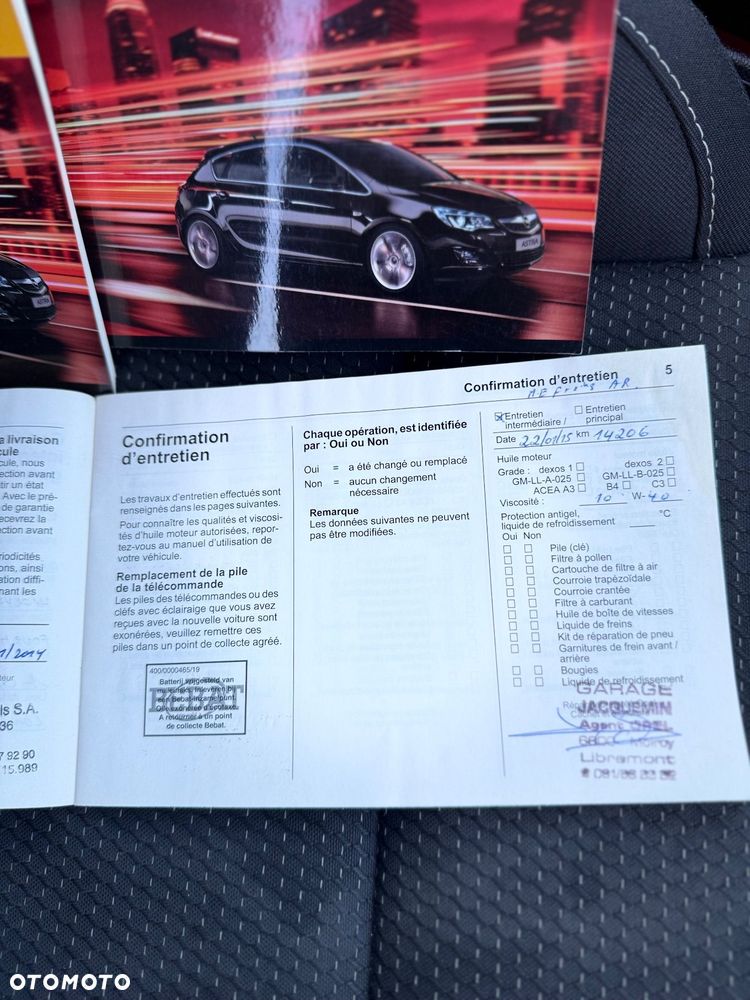 ASTRA
Confirmation d'entretien 5
a livraison
cule
cule, nous
ection avant
tir un état
Avec le pré-
de garantie
ecevrez la
ection avant
riodicités
ons, ainsi
ation diffi-
nant les
1/2014
teur
ls S.A.
36
7 92 90
15.989
Confirmation
d'entretien
Les travaux d'entretien effectués sont
renseignés dans les pages suivantes.
Pour connaître les qualités et viscosi-
tés d'huile moteur autorisées, repor-
tez-vous au manuel d'utilisation de
votre véhicule.
Remplacement de la pile
de la télécommande
Les piles des télécommandes ou des
cléfs avec éclairaige que vous avez
reçues avec la nouvelle voiture sont
exonérées, veuillez remettre ces
piles dans un point de collecte agréé.
400/0000465/19
Batterij vrijgesteld van
BEBAT
A retourner à un point
de collecte Bebat.
Chaque opération, est identifiée
par : Oui ou Non
Oui = a été changé ou remplacé
Non = aucun changement
nécessaire
Remarque
Les données suivantes ne peuvent
pas être modifiées.
AR.
Entretien
intermédiaire /
Entretien
principal
Date 22/01/15 km 14206
Huile moteur
Grade : dexos 1 dexos 2
GM-LL-A-025 GM-LL-B-025
ACEA A3 B4 C3
Viscosité : 10 W-40
Protection antigel,
liquide de refroidissement °C
Oui Non
Pile (clé)
Filtre à pollen
Cartouche de filtre à air
Courroie trapézoïdale
Courroie crantée
Filtre à carburant
Huile de boîte de vitesses
Liquide de freins
Kit de réparation de pneu
Garnitures de frein avant /
arrière
Bougies
Liquide de refroidissement
GARAGE
JACQUEMIN
Agent OPEL
Libramont
OTOMOTO